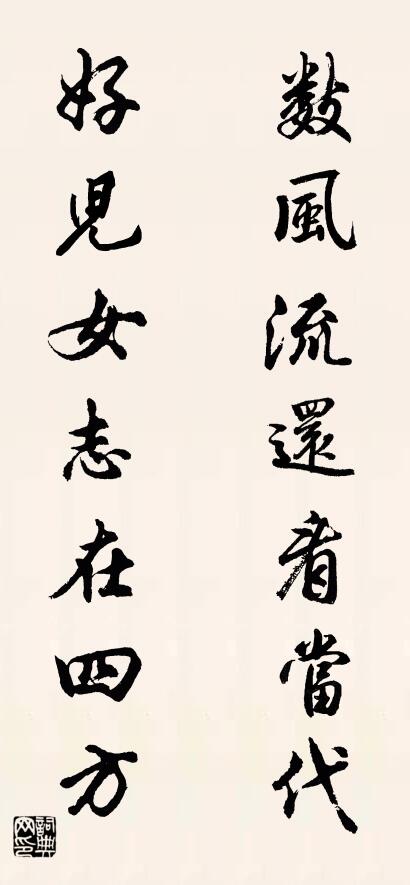 数風流還看當代
好兒女志在四方
詞典網印